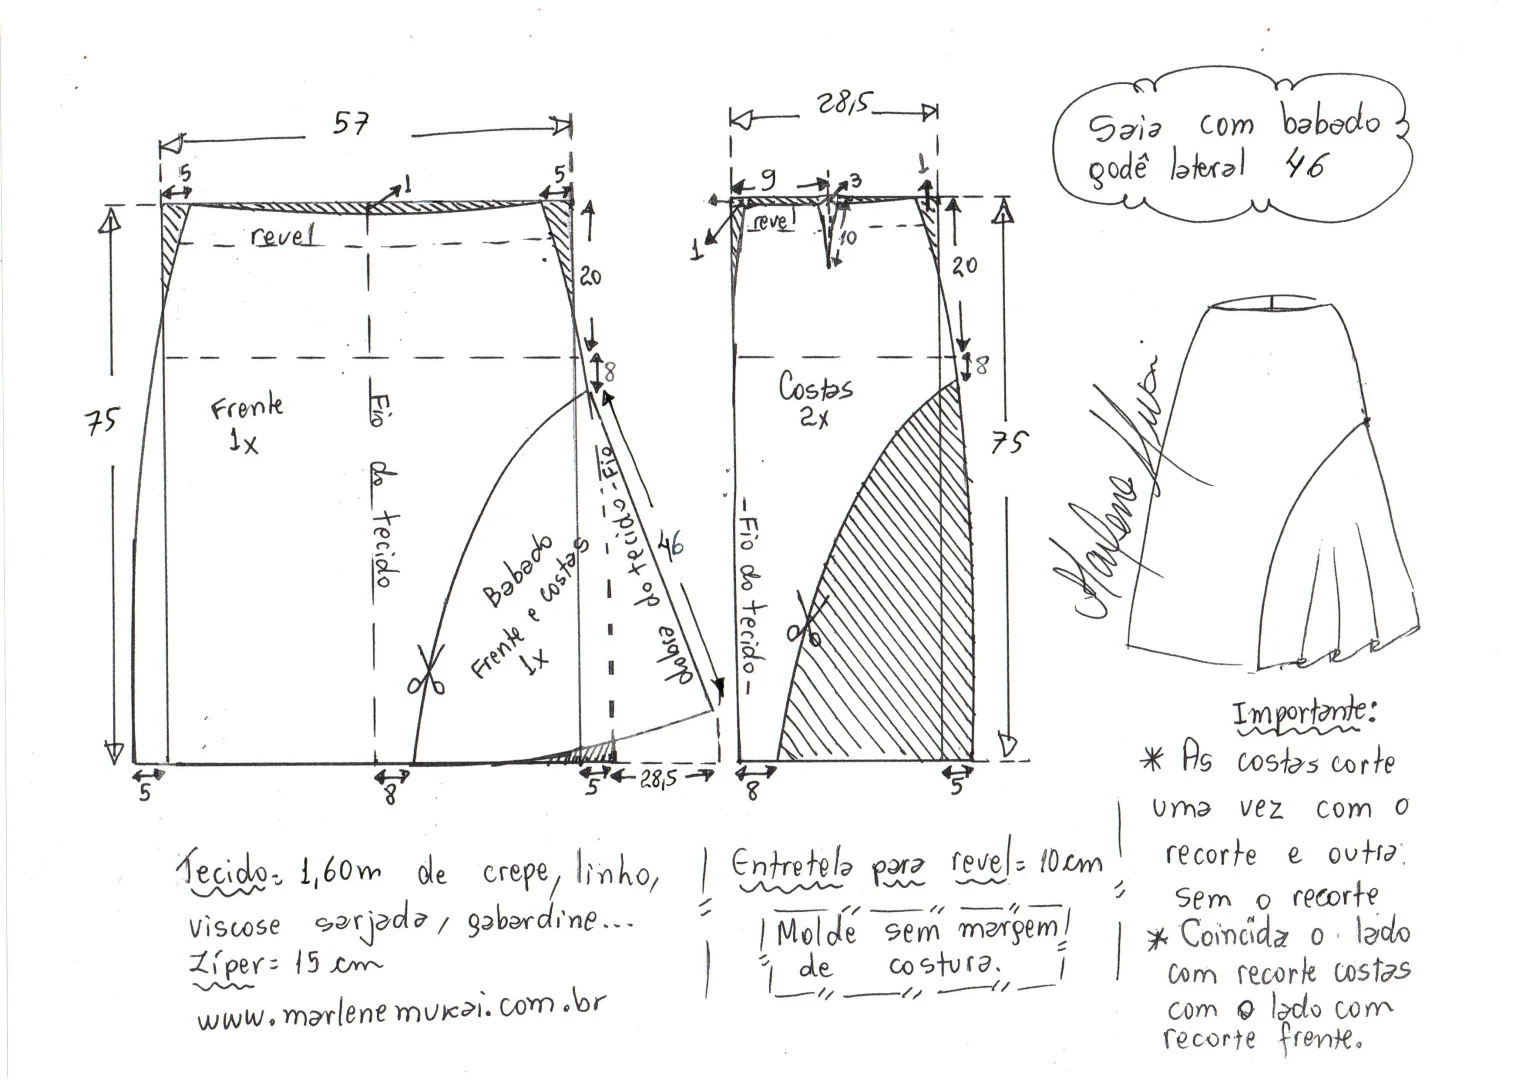 57
5
1
5
revel
20
8
75
Frente
1x
Fio do tecido
Babado
Frente e costas
1x
46
dobra do tecido - Fio
5
8
5
28,5
28,5
9
3
1
revel
1
10
20
8
Costas
2x
75
- Fio do tecido -
8
5
Saia com babado
godê lateral 46
Marlene Mukai
Importante:
* As costas corte
uma vez com o
recorte e outra
sem o recorte
* Coincida o lado
com recorte costas
com o lado com
recorte frente.
Tecido= 1,60m de crepe, linho,
viscose sarjada, gabardine...
Zíper= 15 cm
www.marlenemukai.com.br
Entretela para revel= 10 cm
Molde sem margem
de costura.